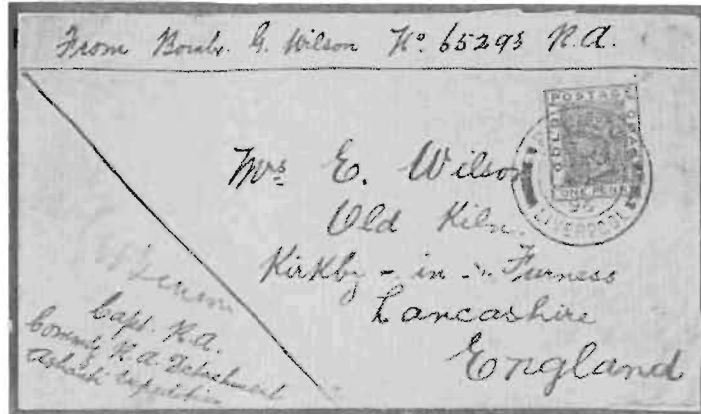 From Bombr. G. Wilson Nº 65293 R.A.
POSTAGE
GOLD COAST
ONE PENNY
LIVERPOOL
Mrs E. Wilson
Old Kiln.
Kirkby - in - Furness
Lancashire
England
Capt. R.A.
Commg R.A. Detachment
Ashanti Expedition